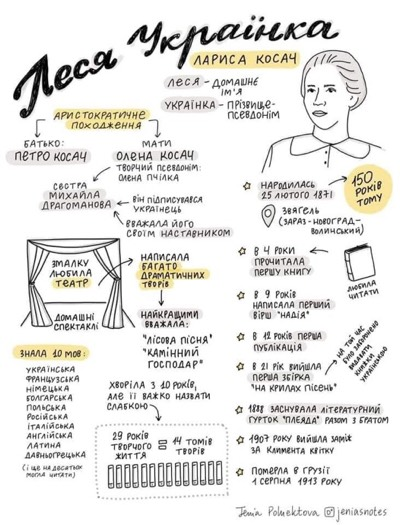 Леся Українка
ЛАРИСА КОСАЧ
ЛЕСЯ - ДОМАШНЄ
ІМ'Я
УКРАЇНКА - ПРІЗВИЩЕ-
ПСЕВДОНІМ
АРИСТОКРАТИЧНЕ
ПОХОДЖЕННЯ
БАТЬКО:
ПЕТРО КОСАЧ
МАТИ
ОЛЕНА КОСАЧ
ТВОРЧИЙ ПСЕВДОНІМ:
ОЛЕНА ПЧІЛКА
СЕСТРА
МИХАЙЛА
ДРАГОМАНОВА
ВІН ПІДПИСУВАВСЯ
УКРАЇНЕЦЬ
ВВАЖАЛА ЙОГО
СВОЇМ НАСТАВНИКОМ
ЗМАЛКУ
ЛЮБИЛА
ТЕАТР
ДОМАШНІ
СПЕКТАКЛІ
НАПИСАЛА
БАГАТО
ДРАМАТИЧНИХ
ТВОРІВ
НАЙКРАЩИМИ
ВВАЖАЛА:
"ЛІСОВА ПІСНЯ"
"КАМІННИЙ
ГОСПОДАР"
ЗНАЛА 10 МОВ:
УКРАЇНСЬКА
ФРАНЦУЗЬКА
НІМЕЦЬКА
БОЛГАРСЬКА
ПОЛЬСЬКА
РОСІЙСЬКА
ІТАЛІЙСЬКА
АНГЛІЙСЬКА
ЛАТИНА
ДАВНЬОГРЕЦЬКА
(І ЩЕ НА ДЕСЯТЬОХ
МОГЛА ЧИТАТИ)
ХВОРІЛА З 10 РОКІВ,
АЛЕ ЇЇ ВАЖКО НАЗВАТИ
СЛАБКОЮ
29 РОКІВ
ТВОРЧОГО
ЖИТТЯ
=
14 ТОМІВ
ТВОРІВ
НАРОДИЛАСЬ
25 ЛЮТОГО 1871
150
РОКІВ
ТОМУ
ЗВЯГЕЛЬ
(ЗАРАЗ - НОВОГРАД-
ВОЛИНСЬКИЙ)
В 4 РОКИ
ПРОЧИТАЛА
ПЕРШУ КНИГУ
ЛЮБИЛА
ЧИТАТИ
В 9 РОКІВ
НАПИСАЛА ПЕРШИЙ
ВІРШ "НАДІЯ"
В 12 РОКІВ ПЕРША
ПУБЛІКАЦІЯ
В 21 РІК ВИЙШЛА
ПЕРША ЗБІРКА
"НА КРИЛАХ ПІСЕНЬ"
НА ТОЙ ЧАС
БУЛО ЗАБОРОНЕНО
ВИДАВАТИ
КНИЖКИ
УКРАЇНСЬКОЮ
1888 ЗАСНУВАЛА ЛІТЕРАТУРНИЙ
ГУРТОК "ПЛЕЯДА" РАЗОМ З БРАТОМ
1907 РОКУ ВИЙШЛА ЗАМІЖ
ЗА КЛИМЕНТА КВІТКУ
ПОМЕРЛА В ГРУЗІЇ
1 СЕРПНЯ 1913 РОКУ
Jenia Poluektova jeniasnotes